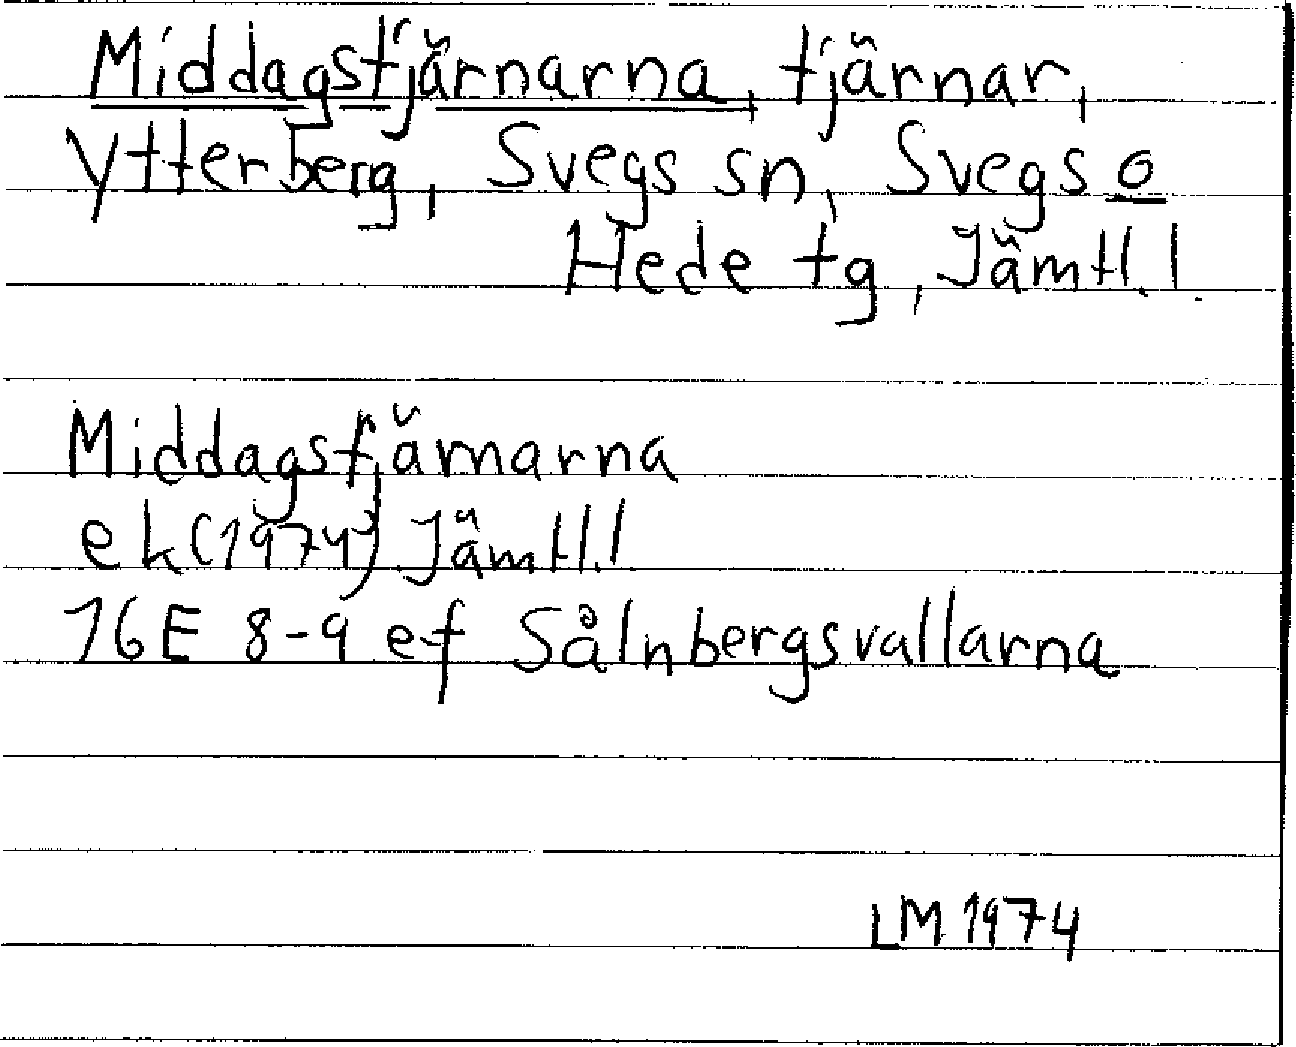 Middagstjärnarna, tjärnar,
Ytterberg, Svegs sn, Svegs o
Hede tg, Jämtl. l.
Middagstjärnarna
ek (1974) Jämtl. l
16E 8-9 e-f Sålnbergsvallarna
LM 1974